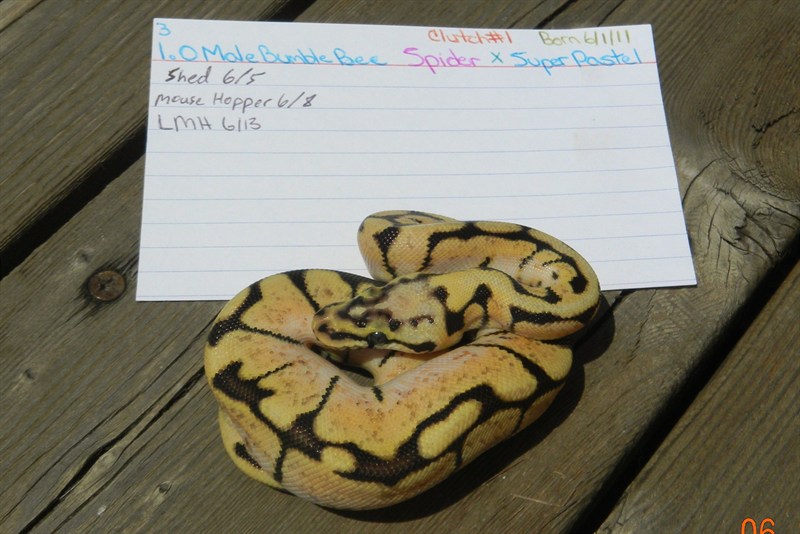 3 Clutch#1 Born 6/1/11
1.0 Male Bumble Bee Spider x Super Pastel
Shed 6/5
Mouse Hopper 6/8
LMH 6/13
06